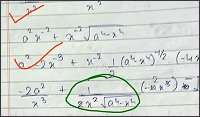 x³
a²x⁻² + x⁻²√a⁴-x⁴
a² -2x⁻³ + x⁻² 1/2 (a⁴-x⁴)^-1/2 (-4x
-2a²/x³ + 1/2x²√a⁴-x⁴